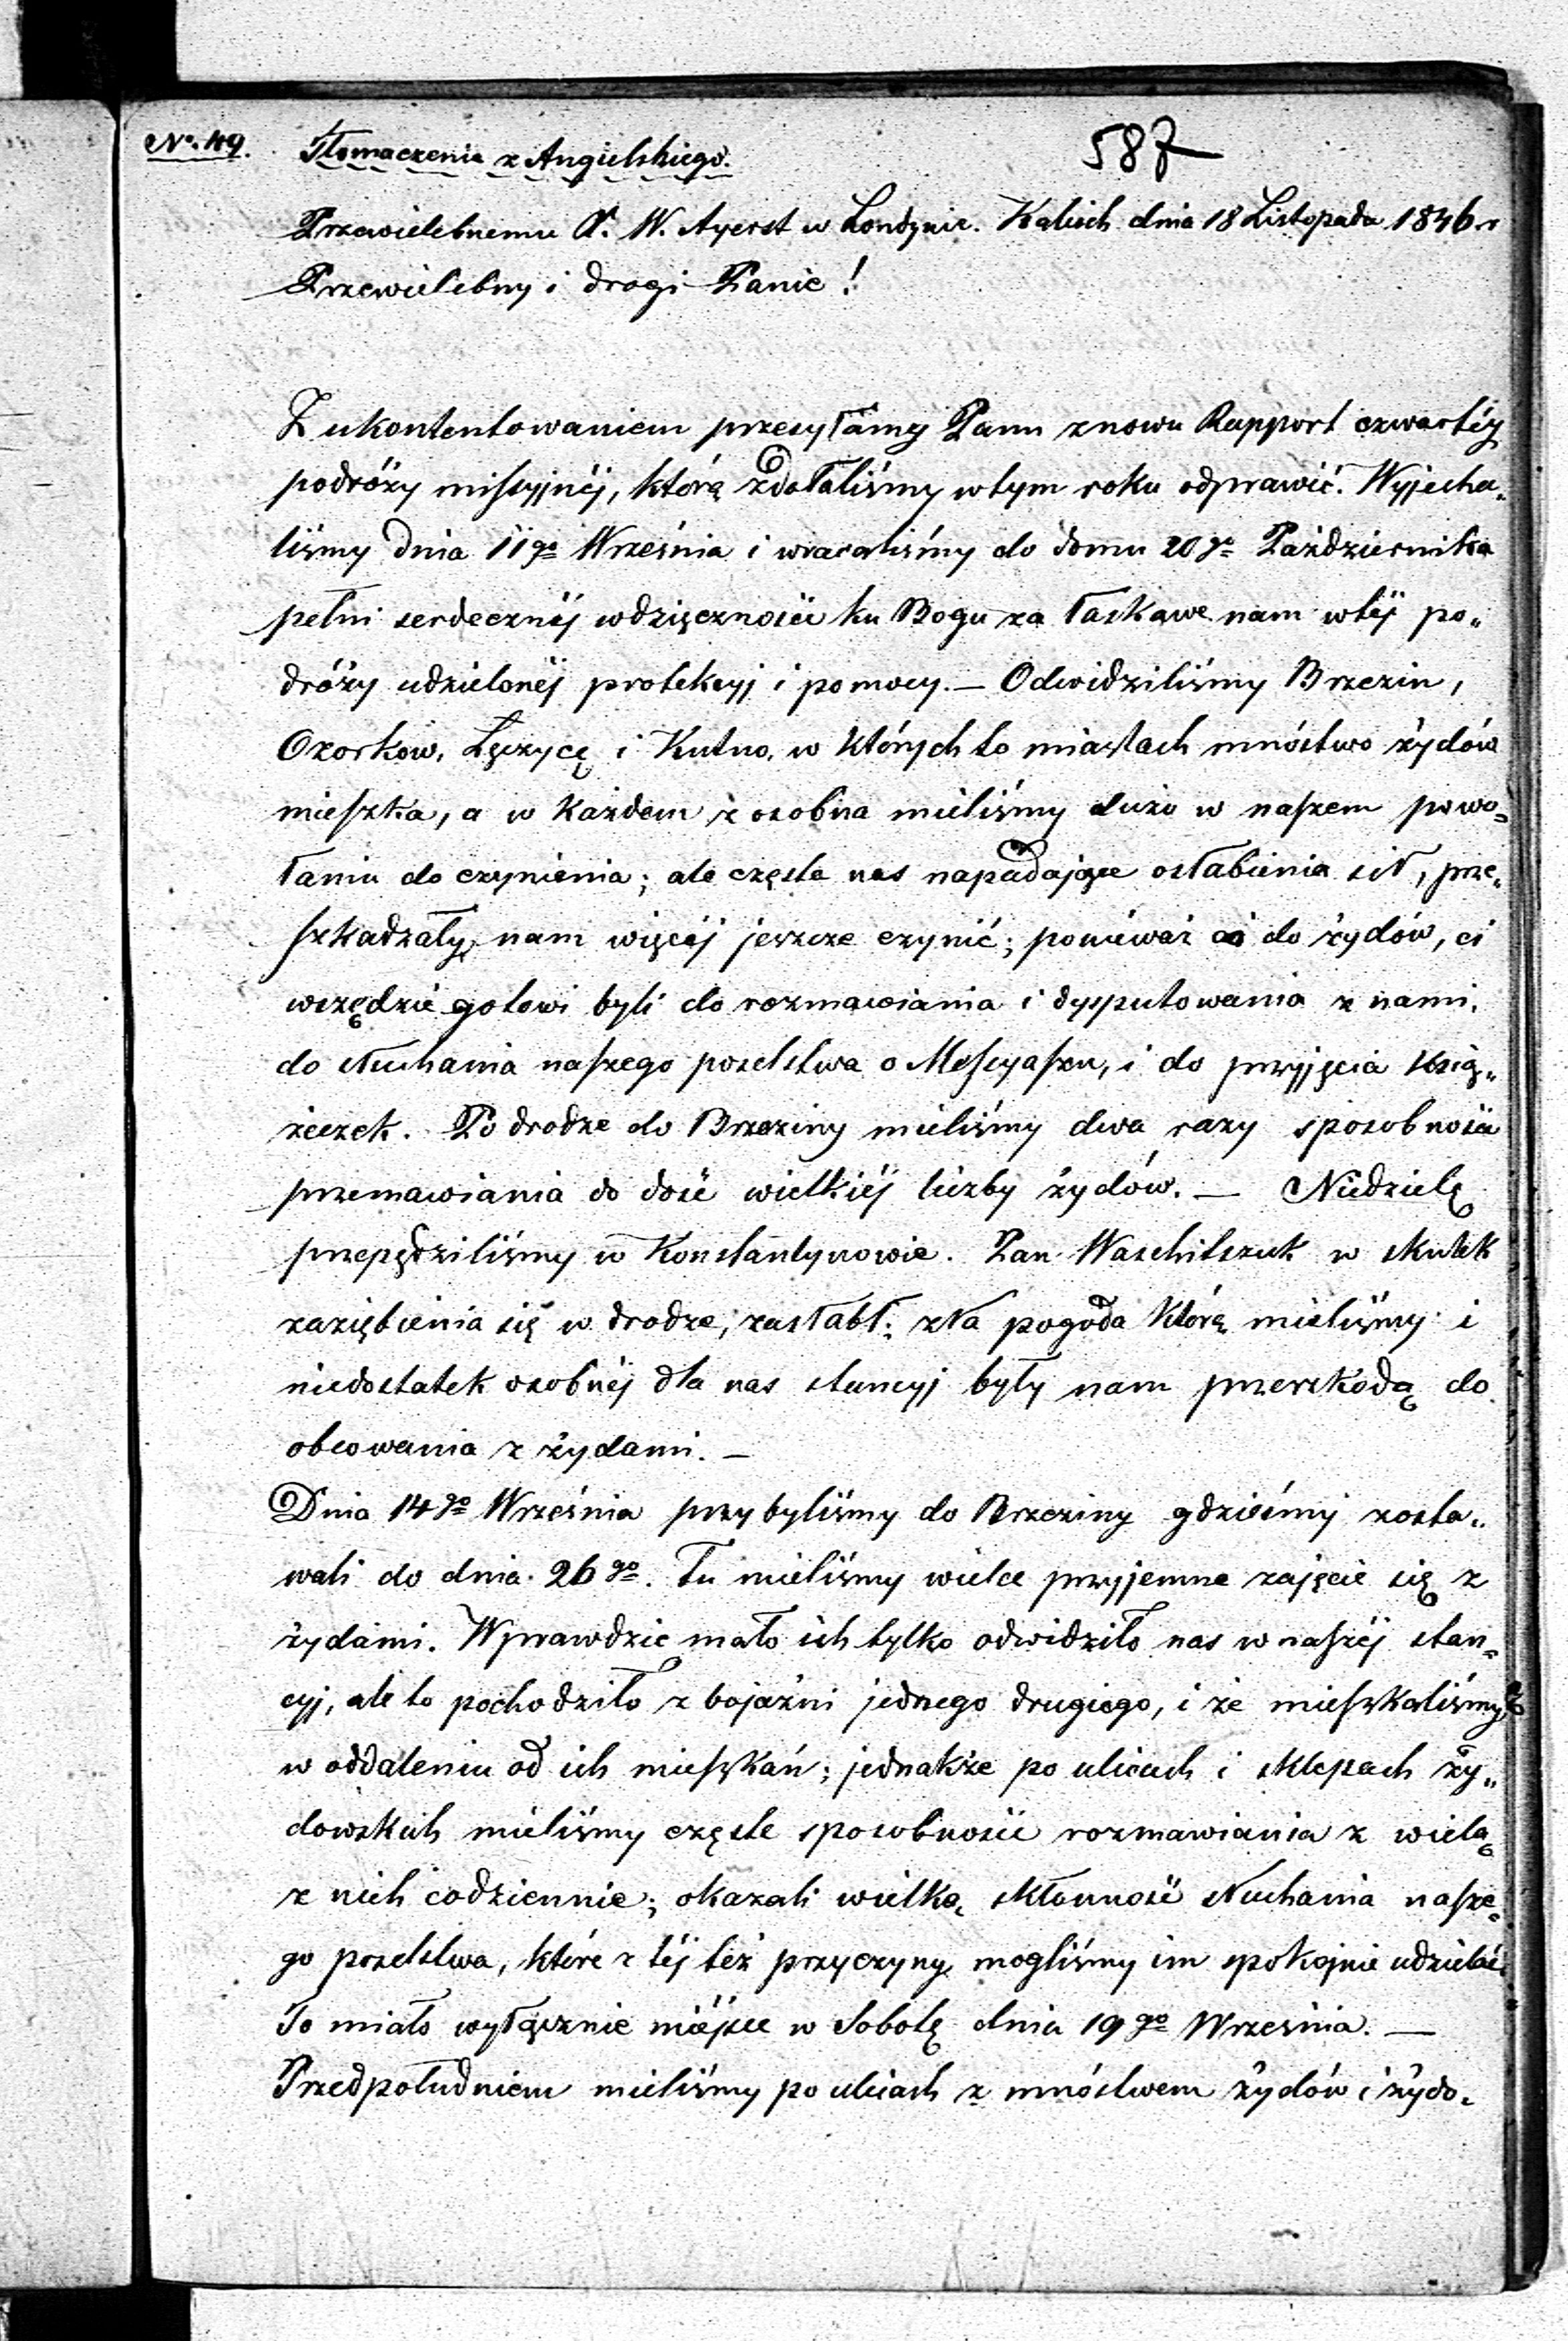 No. 49. Tłomaczenie z Angielskiego. 587
Przewielebnemu W. Ayerst w Londynie. Kalisch dnia 18 Listopada 1846 r
Przewielebny i drogi Panie!
Z ukontentowaniem przesyłamy Panu znowu Rapport czwartéj
podróży missyjnéj, którą zdołaliśmy w tym roku odprawić. Wyjecha„
liśmy dnia 11go Września i wracaliśmy do domu 20go Października
pełni serdecznéj wdzięczności ku Bogu za łaskawe nam w téj po„
dróży udzielonéj protekcyj i pomocy. — Odwidziliśmy Brzezin,
Ozorków, Łęczycę i Kutno, w których to miastach mnóstwo żydów
mieszka, a w każdem z osobna mieliśmy dużo w naszem powo„
łaniu do czynienia; ale częste nas napadające osłabienia sił, prze„
szkadzały nam więcéj jeszcze czynić; ponieważ co do żydów, ci
wszędzie gotowi byli do rozmawiania i dysputowania z nami,
do słuchania naszego poselstwa o Messyaszu, i do przyjęcia ksią„
żeczek. Po drodze do Brzeziny mieliśmy dwa razy sposobność
przemawiania do dość wielkiéj liczby żydów. — Niedzielę
przepędziliśmy w Konstantynowie. Pan Waschitszuk w skutek
zaziębienia się w drodze, zasłabł; zła pogoda którą mieliśmy i
niedostatek osobnéj dla nas stancyj były nam przeszkodą do
obcowania z żydami. —
Dnia 14go Września przybyliśmy do Brzeziny gdzieśmy zosta„
wali do dnia 26go. Tu mieliśmy wielce przyjemne zajęcie się z
żydami. Wprawdzie mało ich tylko odwidziło nas w naszéj stan„
cyj, ale to pochodziło z bojaźni jednego drugiego, i że mieszkaliśmy
w oddaleniu od ich mieszkań; jednakże po ulicach i sklepach ży„
dowskich mieliśmy częste sposobności rozmawiania z wielą
z nich codziennie; okazali wielką skłonność słuchania nasze„
go poselstwa, które z téj też przyczyny mogliśmy im spokojnie udzielać.
To miało wyłącznie miéjsce w Sobotę dnia 19go Września. —
Przedpołudniem mieliśmy po ulicach z mnóstwem żydów i żydo„